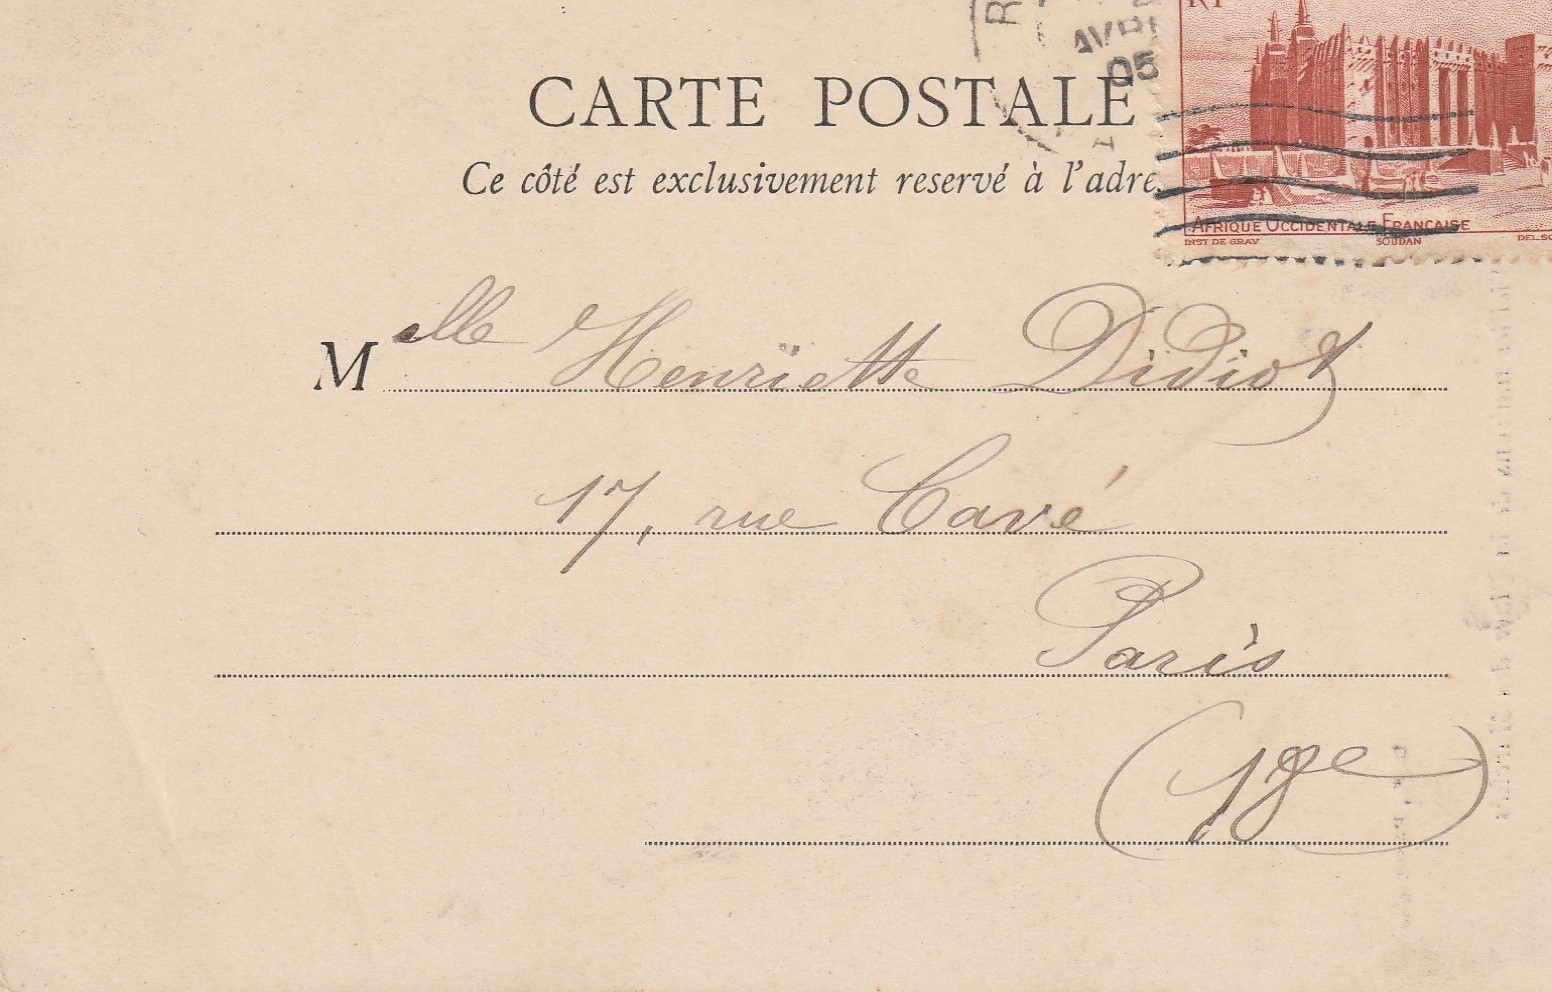 RF
AVR
05
CARTE POSTALE
Ce côté est exclusivement reservé à l'adre
AFRIQUE OCCIDENTALE FRANÇAISE
INST DE GRAV SOUDAN DEL.SC
Melle Henriette Didiot
17, rue Cavé
Paris
(18e)